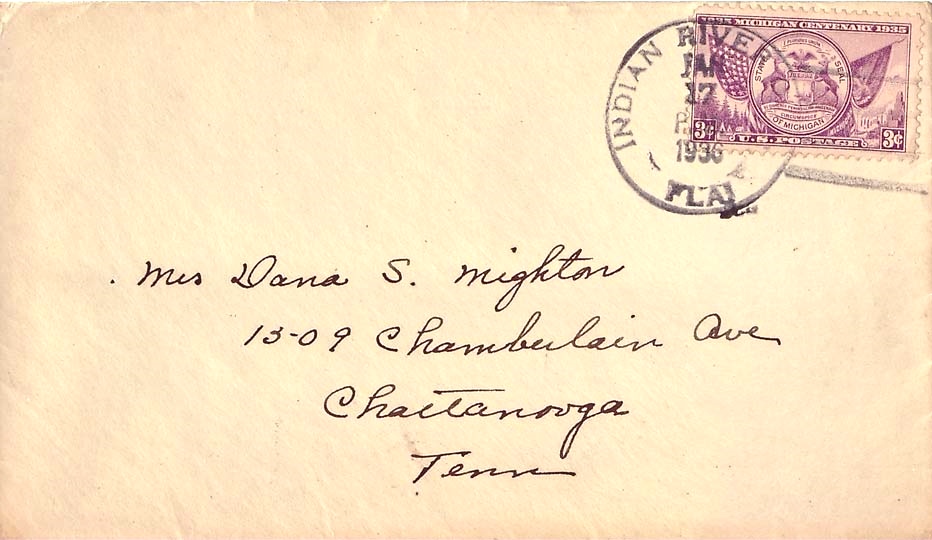 1835 MICHIGAN CENTENARY 1935
STATE SEAL
OF MICHIGAN
3¢ U.S. POSTAGE 3¢
INDIAN RIVER
JAN
17
P.M.
1936
FLA.
Mrs Dana S. Mighton
1309 Chamberlain Ave
Chattanooga
Tenn